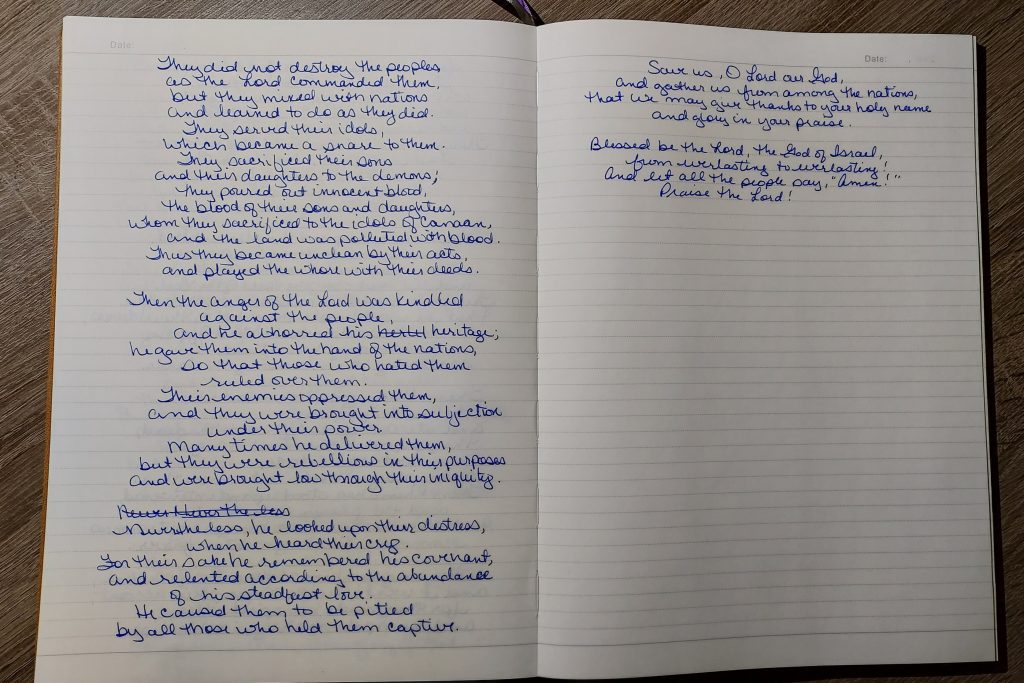 Date:
They did not destroy the peoples,
as the Lord commanded them,
but they mixed with nations
and learned to do as they did.
They served their idols,
which became a snare to them.
They sacrificed their sons
and their daughters to the demons;
they poured out innocent blood,
the blood of their sons and daughters,
whom they sacrificed to the idols of Canaan,
and the land was polluted with blood.
Thus they became unclean by their acts,
and played the whore with their deeds.
Then the anger of the Lord was kindled
against the people,
and he abhorred his heritage;
he gave them into the hand of the nations,
so that those who hated them
ruled over them.
Their enemies oppressed them,
and they were brought into subjection
under their power.
Many times he delivered them,
but they were rebellious in their purposes
and were brought low through their iniquity.
Nevertheless, he looked upon their distress,
when he heard their cry.
For their sake he remembered his covenant,
and relented according to the abundance
of his steadfast love.
He caused them to be pitied
by all those who held them captive.
Date:
Save us, O Lord our God,
and gather us from among the nations,
that we may give thanks to your holy name
and glory in your praise.
Blessed be the Lord, the God of Israel,
from everlasting to everlasting!
And let all the people say, "Amen!"
Praise the Lord!